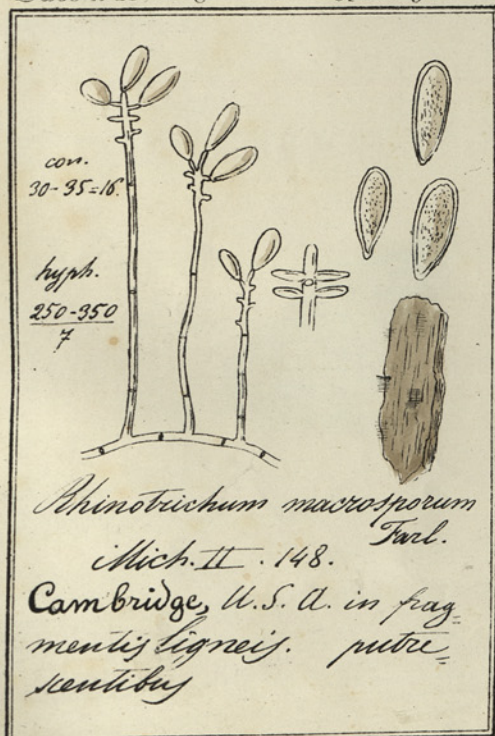 con.
30-35=16.
hyph.
250-350
7
Rhinotrichum macrosporum
Farl.
Mich. II. 148.
Cambridge, U.S.A. in frag=
mentis ligneis. putre=
scentibus